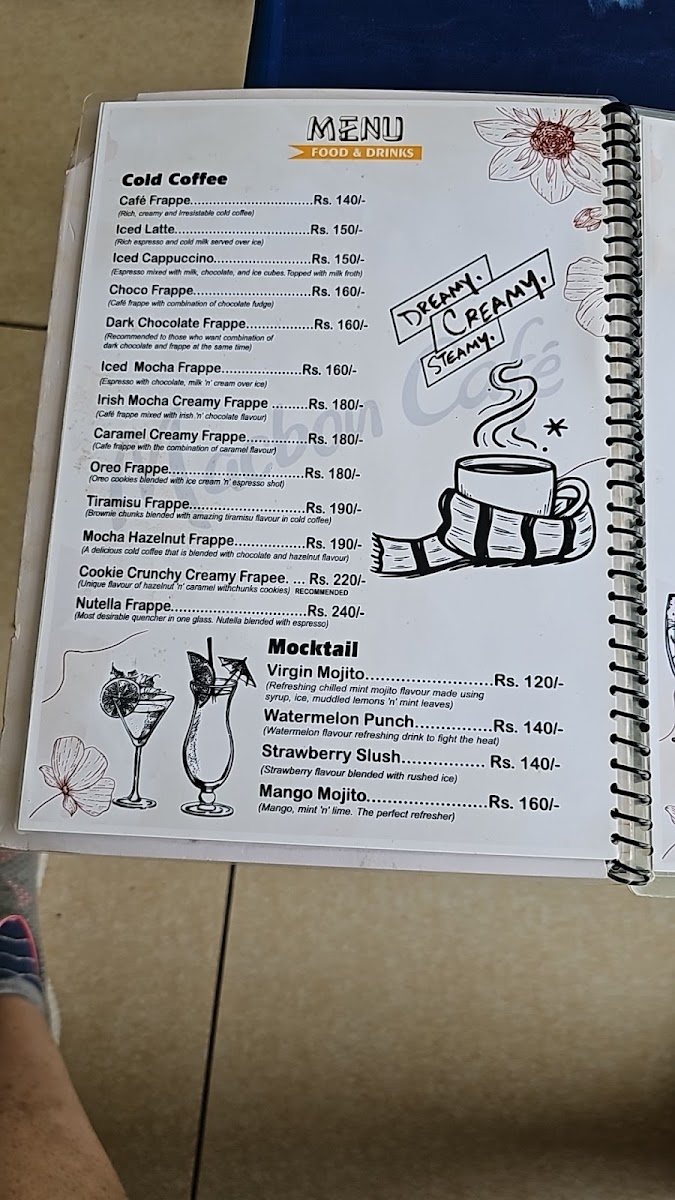 MENU
FOOD & DRINKS
Cold Coffee
Café Frappe..............................Rs. 140/-
(Rich, creamy and Irresistable cold coffee)
Iced Latte.................................Rs. 150/-
(Rich espresso and cold milk served over ice)
Iced Cappuccino.......................Rs. 150/-
(Espresso mixed with milk, chocolate, and ice cubes. Topped with milk froth)
Choco Frappe............................Rs. 160/-
(Café frappe with combination of chocolate fudge)
Dark Chocolate Frappe................Rs. 160/-
(Recommended to those who want combination of
dark chocolate and frappe at the same time)
Iced Mocha Frappe....................Rs. 160/-
(Espresso with chocolate, milk 'n' cream over ice)
Irish Mocha Creamy Frappe .........Rs. 180/-
(Café frappe mixed with irish 'n' chocolate flavour)
Caramel Creamy Frappe..............Rs. 180/-
(Cafe frappe with the combination of caramel flavour)
Oreo Frappe................................Rs. 180/-
(Oreo cookies blended with ice cream 'n' espresso shot)
Tiramisu Frappe...........................Rs. 190/-
(Brownie chunks blended with amazing tiramisu flavour in cold coffee)
Mocha Hazelnut Frappe................Rs. 190/-
(A delicious cold coffee that is blended with chocolate and hazelnut flavour)
Cookie Crunchy Creamy Frapee. ... Rs. 220/-
(Unique flavour of hazelnut 'n' caramel withchunks cookies) RECOMMENDED
Nutella Frappe...............................Rs. 240/-
(Most desirable quencher in one glass. Nutella blended with espresso)
DREAMY.
CREAMY.
STEAMY.
Café
Mocktail
Virgin Mojito..........................Rs. 120/-
(Refreshing chilled mint mojito flavour made using
syrup, ice, muddled lemons 'n' mint leaves)
Watermelon Punch...............Rs. 140/-
(Watermelon flavour refreshing drink to fight the heat)
Strawberry Slush................ Rs. 140/-
(Strawberry flavour blended with rushed ice)
Mango Mojito........................Rs. 160/-
(Mango, mint 'n' lime. The perfect refresher)